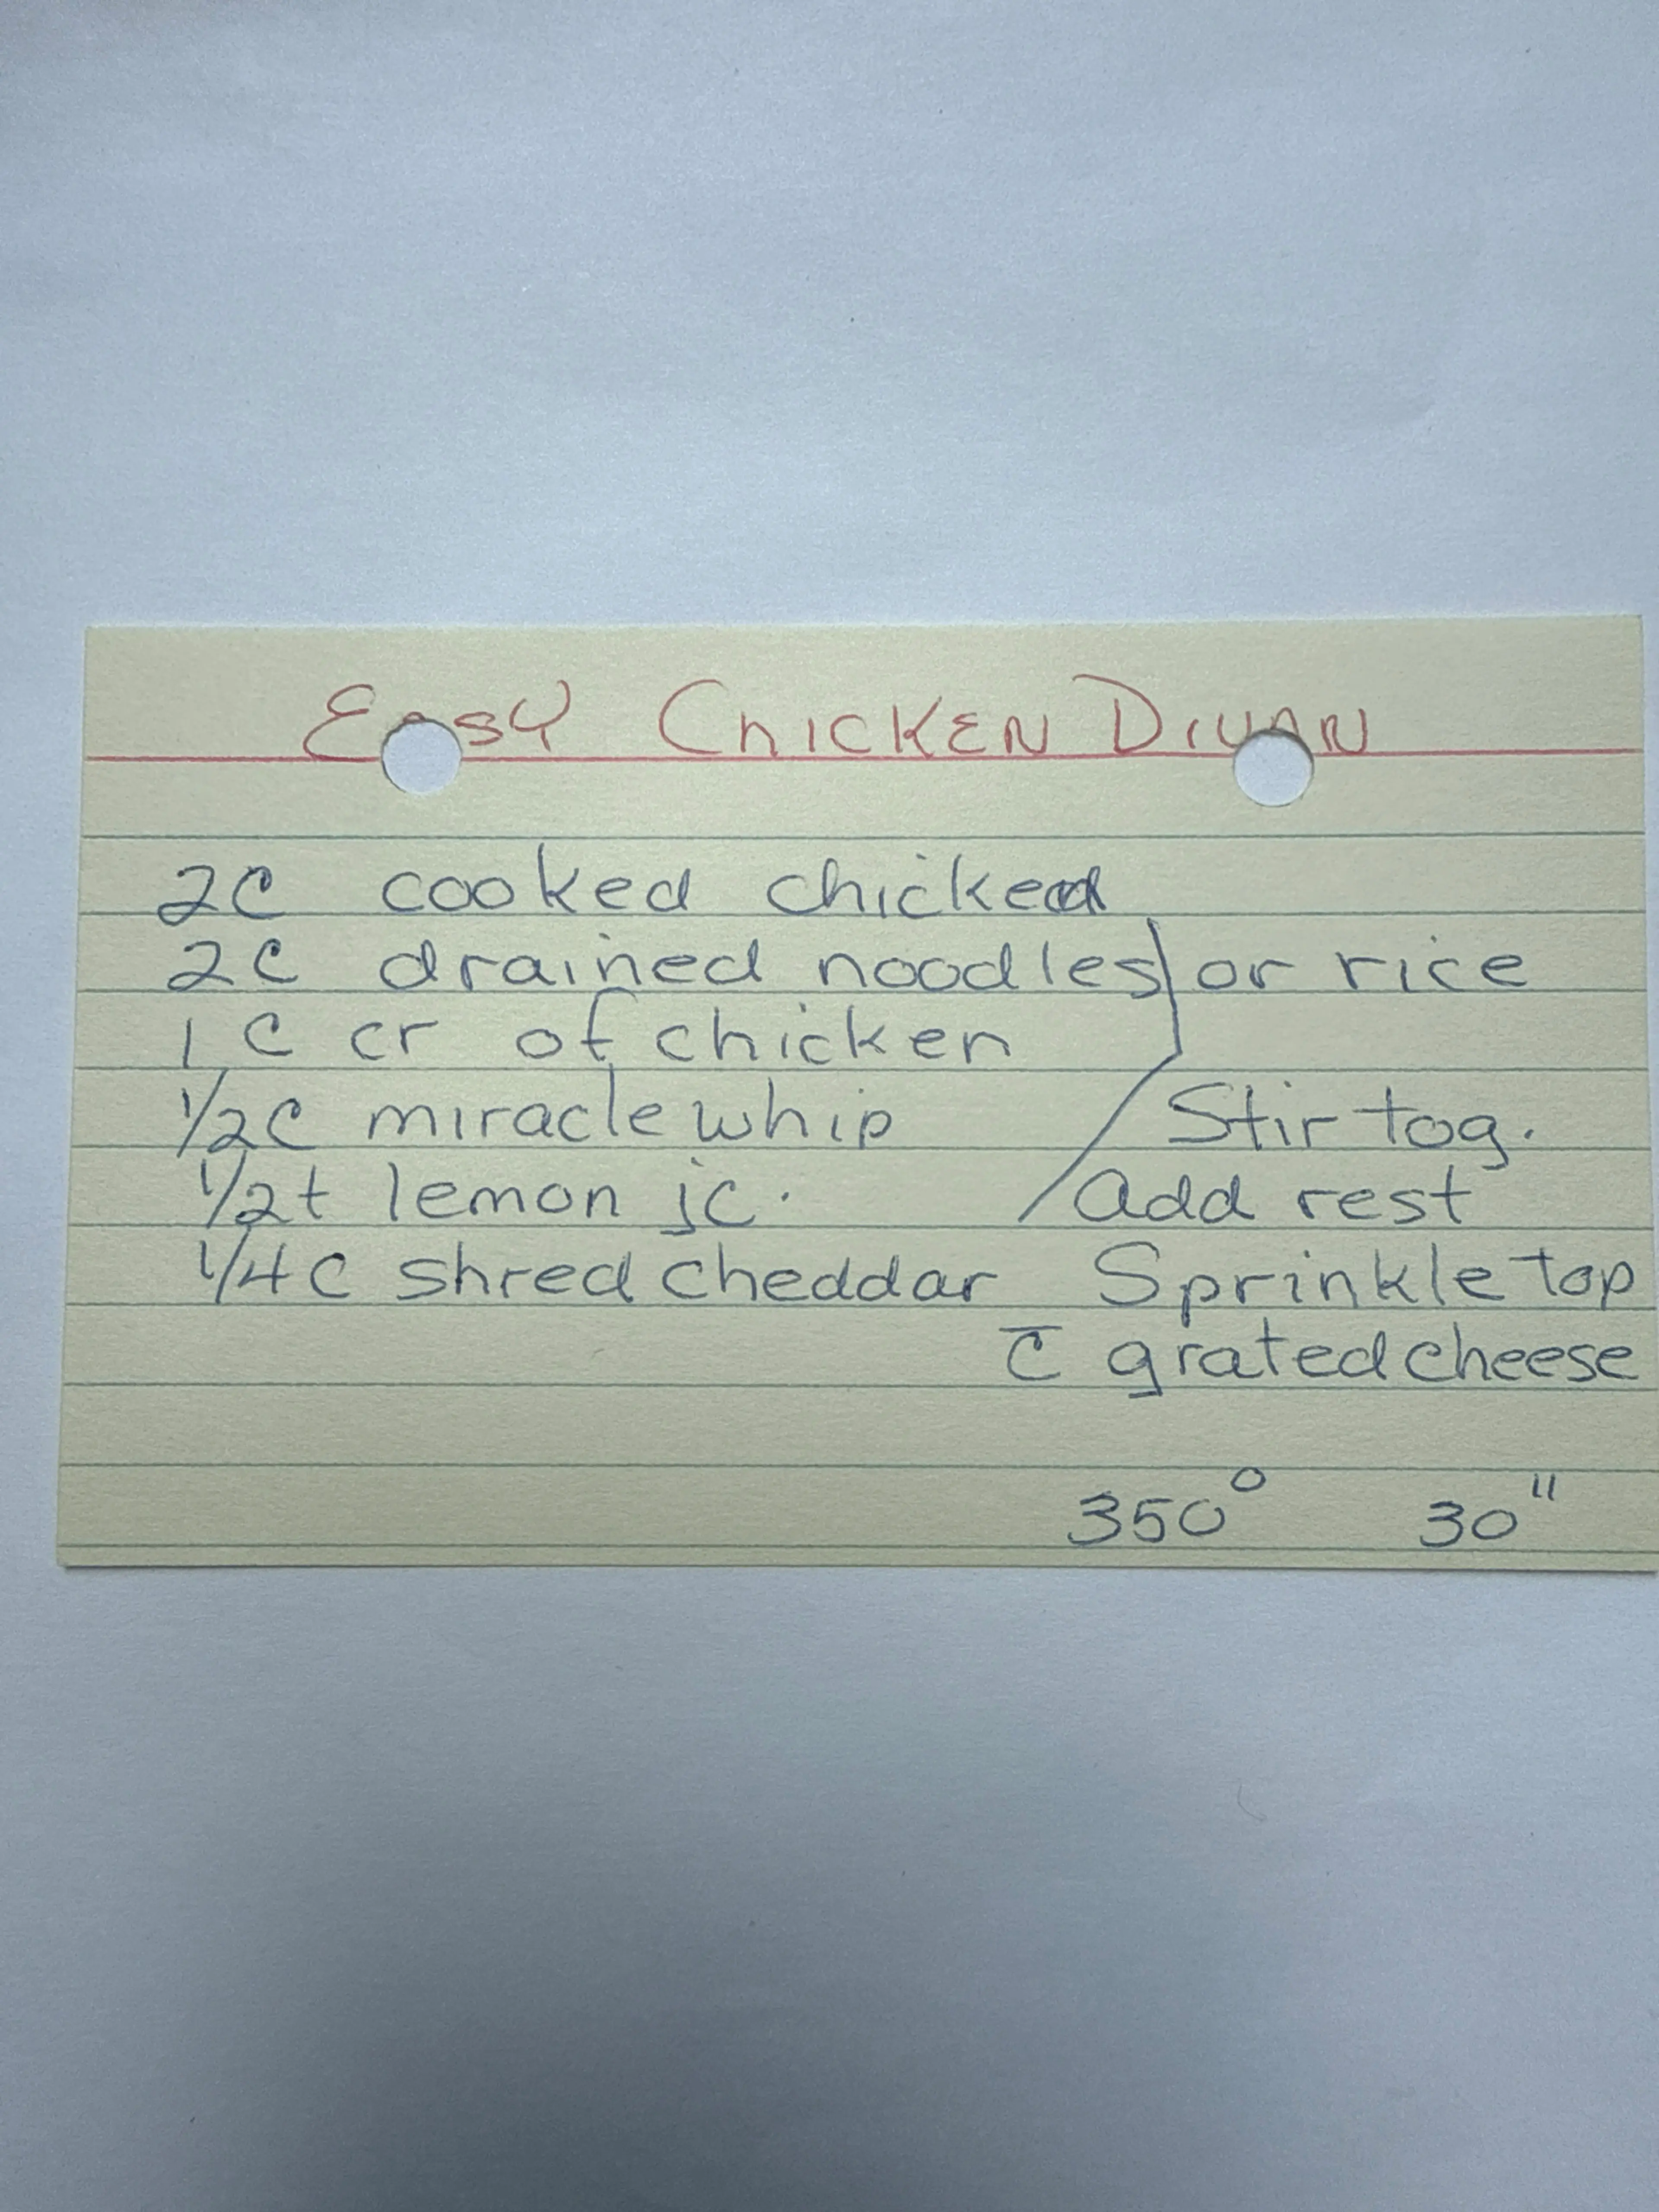 Easy Chicken Divan
2C cooked chicken
2C drained noodles or rice
1 C cr of chicken
1/2C miracle whip Stir tog.
1/2t lemon jc. add rest
1/4C shred cheddar Sprinkle top
c̄ grated cheese
350° 30"